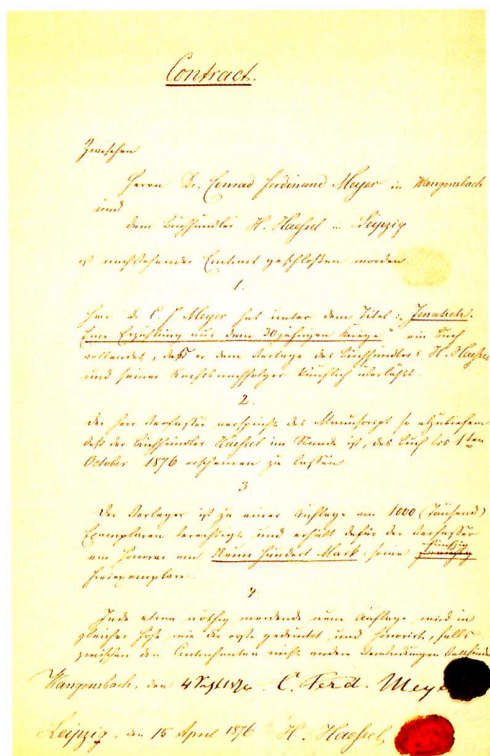 Contract.
Zwischen
Herrn Dr. Conrad Ferdinand Meyer in Wangensbach
und
dem Buchhändler H. Haessel in Leipzig
ist nachstehender Contract geschloßen worden.
1.
Herr Dr. C. F. Meyer hat unter dem Titel: „Jenatsch.
Eine Erzählung aus dem 30jährigen Kriege" ein Buch
vollendet, das er dem Verlage des Buchhändlers H. Haessel
und seiner Rechtsnachfolger käuflich überläßt.
2.
Der Herr Verfasser verspricht das Manuscript so abzuliefern
daß der Buchhändler Haessel im Stande ist, das Buch bis 1ten
October 1876 erscheinen zu lassen
3
Der Verleger ist zu einer Auflage von 1000 (Tausend)
Exemplaren berechtigt und erhält dafür der Verfasser
ein Honorar von Neun hundert Mark sowie
Freiexemplare.
4
Jede etwa nöthig werdende neue Auflage wird in
gleicher Höhe wie die erste gedruckt und honorirt, falls
zwischen den Contrahenten nicht andere Vereinbarungen
Wangensbach, den C. Ferd. Meyer
Leipzig, den 15 April 1876 H. Haessel